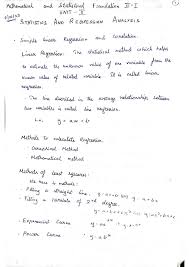 Mathematical and Statistical Foundation II-I
UNIT - V
STATISTICS AND REGRESSION ANALYSIS
• Simple Linear Regression and Correlation
Linear Regression: The statistical method which helps
to estimate the unknown value of one variable from the
known value of related variable. It is called linear
regression.
• The line described in the average relationship between
two variables is called line regression.
i.e., y = ax + b
• Methods to calculate Regression:
- Graphical Method
- Mathematical method
• Methods of least squares:
We have 4 methods:
- Fitting a straight line.
- Fitting a parabola of 2nd degree.
- Exponential Curve
- Power Curve